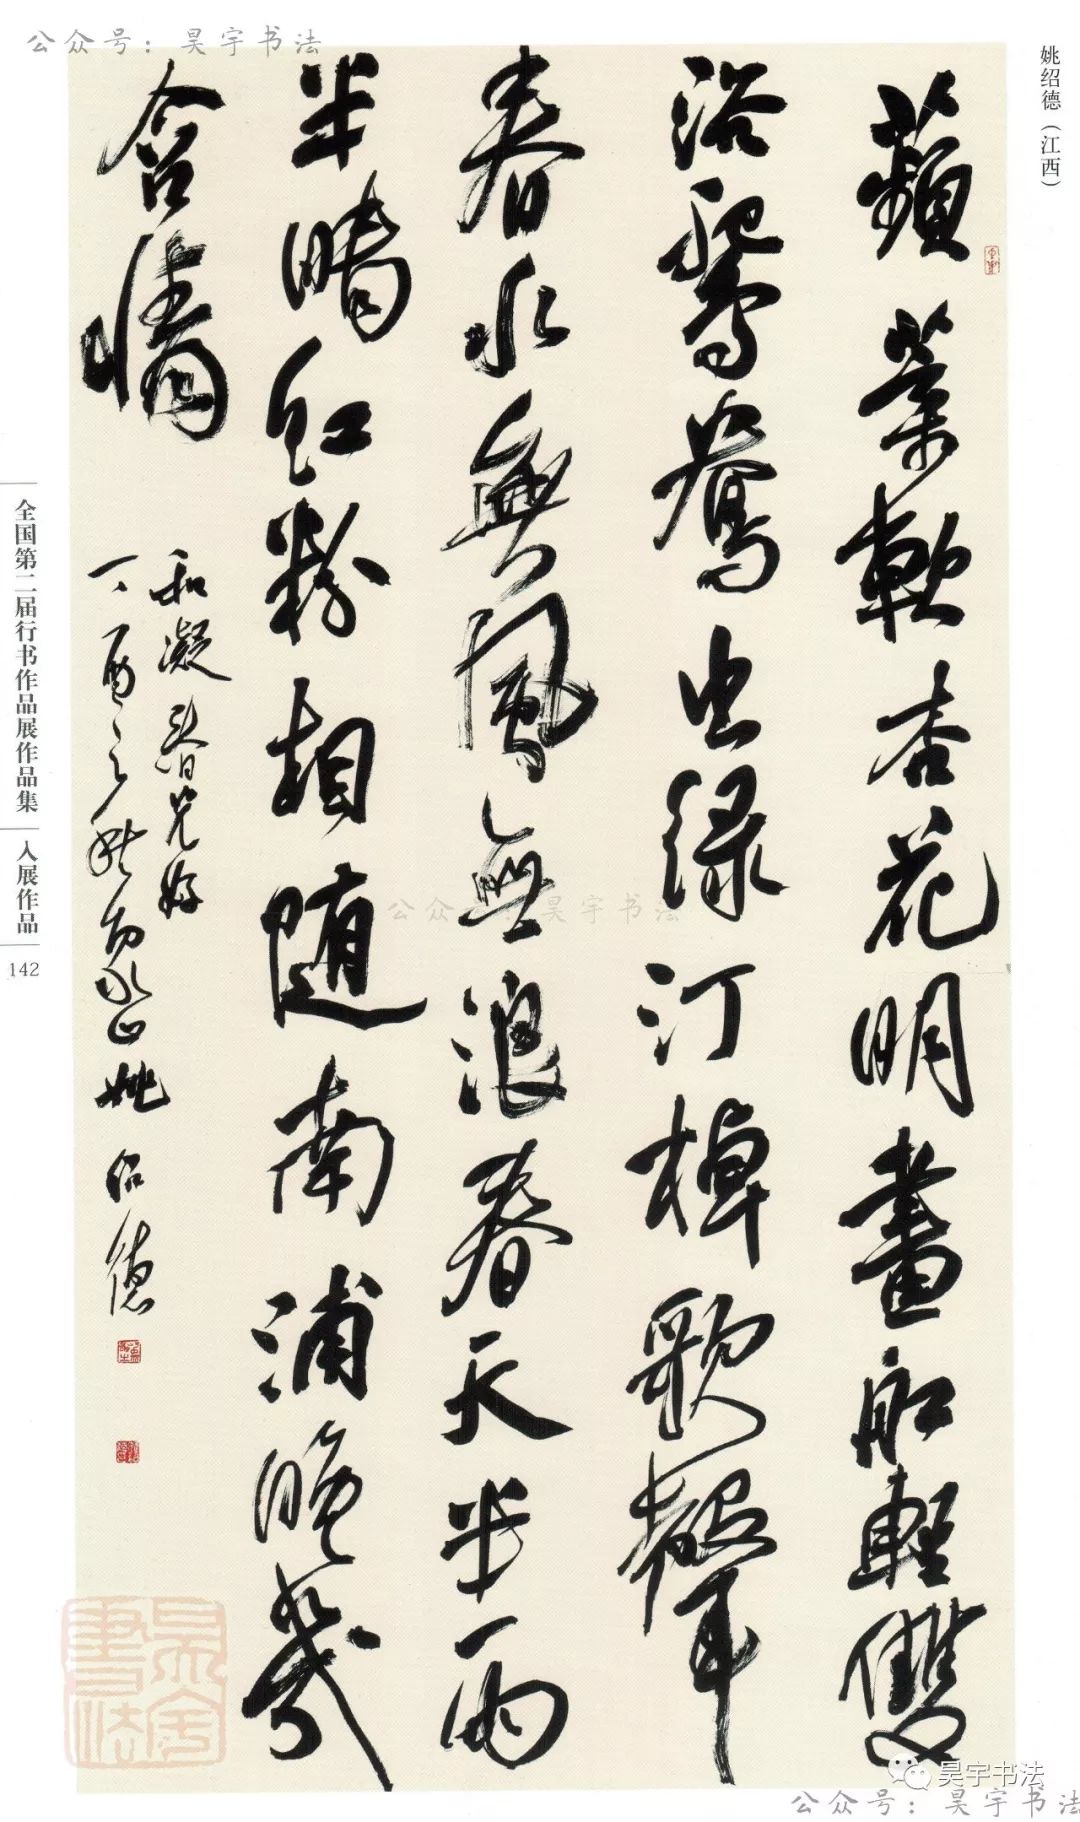 公众号：昊宇书法
姚绍德（江西）
蘋葉軟杏花明畫舡輕雙
浴鴛鴦出绿汀棹歌聲
春水無風無浪春天半雨
半晴红粉相随南浦晚幾
含情
和凝春光好
丁酉之秋 山姚绍德
全国第二届行书作品展作品集
入展作品
142
公众号：昊宇书法
昊宇書法
昊宇书法
公众号：昊宇书法